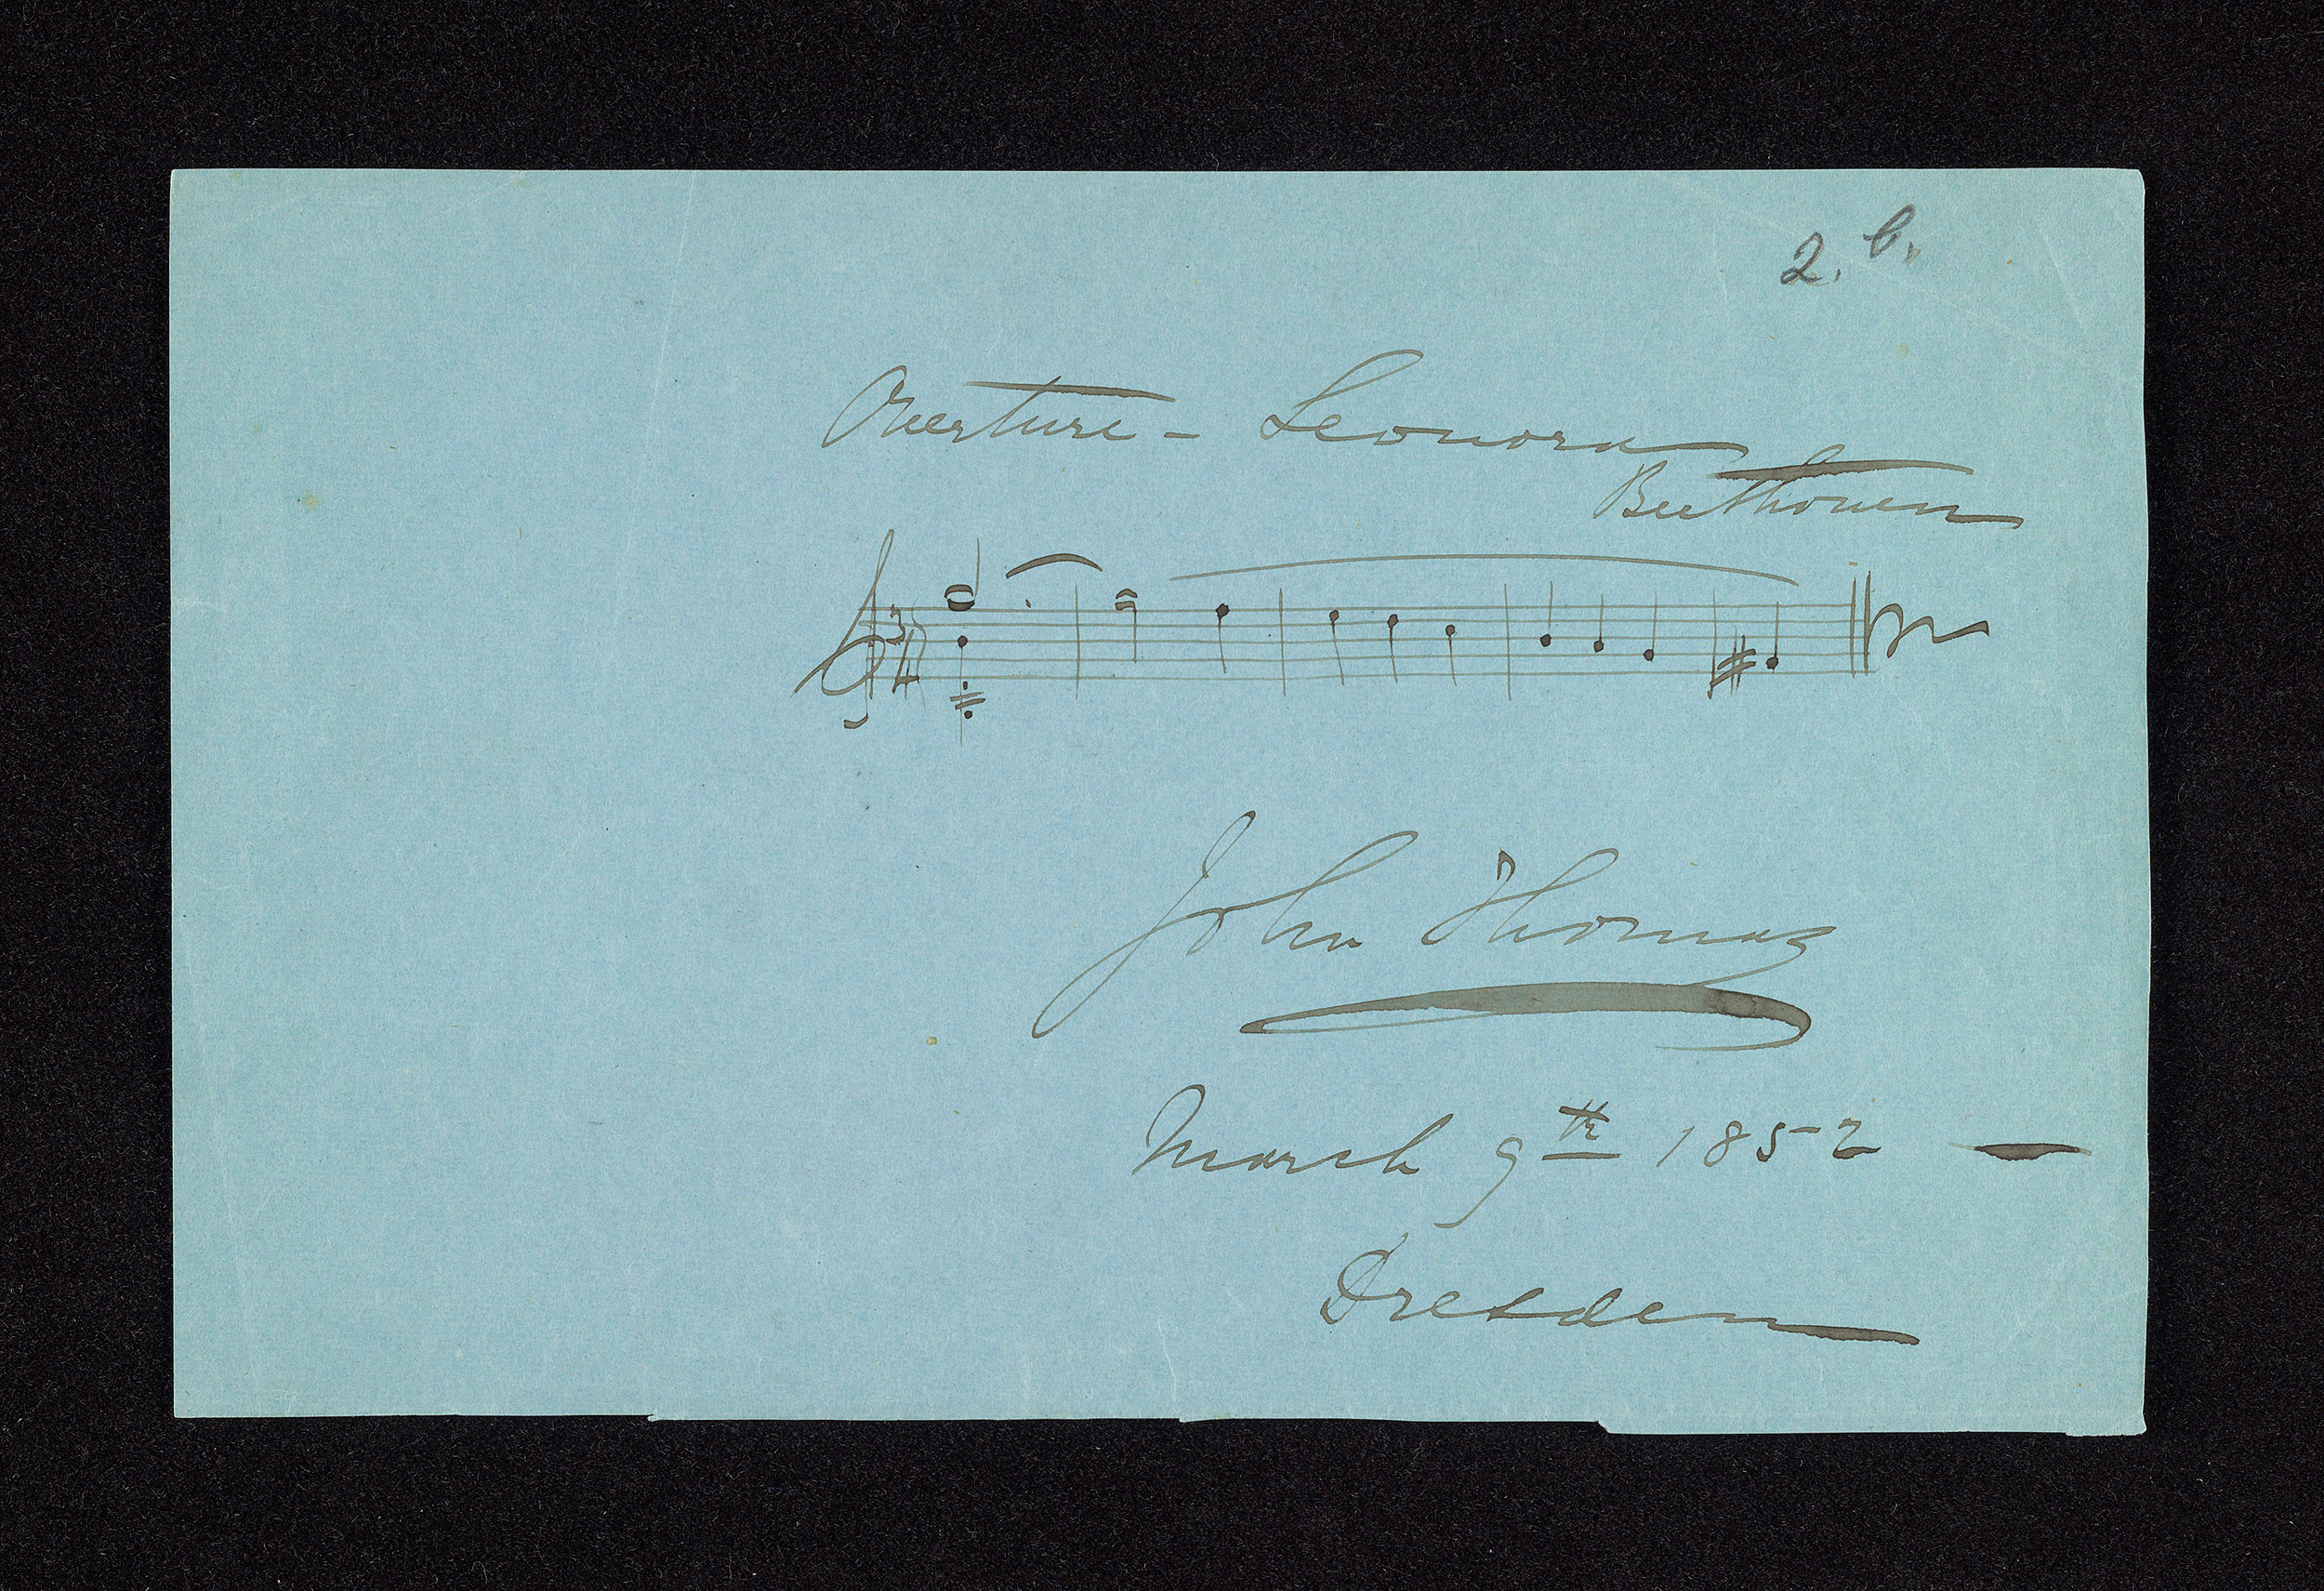 2. b.
Overture - Leonora
Beethoven
3/4
John Thomas
March 9th 1852 —
Dresden